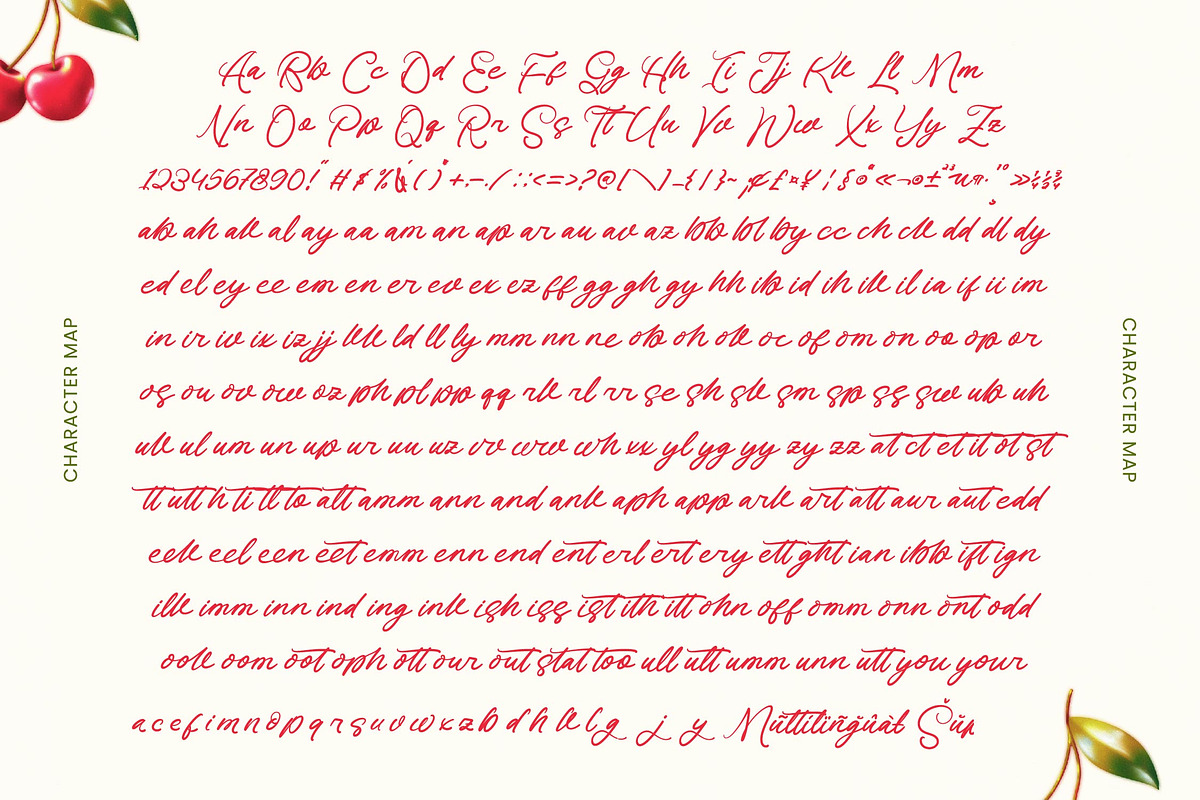 Aa Bb Cc Dd Ee Ff Gg Hh Ii Jj Kk Ll Mm
Nn Oo Pp Qq Rr Ss Tt Uu Vv Ww Xx Yy Zz
1234567890!" # $ % & ' ( ) * + , - . / : ; < = > ? @ [ \ ] _ { | } ~ ¡ ¢ £ ¤ ¥ ¦ § ¨ © ª « ¬ ® ° ± ² ³ ´ µ ¶ · ¸ ¹ º » ¼ ½ ¾
ab ah ak al ay aa am an ap ar au av az bb bl by cc ch ck dd dl dy
ed el ey ee em en er ev ex ez ff gg gh gy hh ib id ih ik il ia if ii im
in ir iv ix iz jj kk ld ll ly mm nn ne ob oh ok oc of om on oo op or
os ou ov ow oz ph pl pp qq rk rl rr se sh sk sm sp ss sw ub uh
uk ul um un up ur uu uz vv ww wh xx yl yg yy zy zz at ct et it ot st
tt utt th ti tl to alt amm ann and ank aph app ark art att aur aut edd
eek eel een eet emm enn end ent erl ert ery ett ght ian ibb ift ign
ilk imm inn ind ing ink ish iss ist ith itt ohn off omm onn ont odd
ook oom oot oph ott our out stat too ull ult umm unn utt you your
a c e f i m n o p q r s u v w x z b d h k l g j y Mũltilïñğûàł Šŭp
CHARACTER MAP
CHARACTER MAP